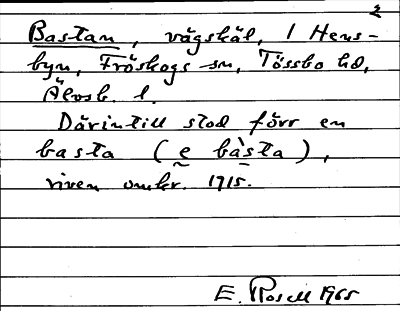 2
Bastan, vägskäl, i Hens-
byn, Fröskogs sn, Tössbo hd,
Älvsb. l.
Därintill stod förr en
basta (e bàsta),
riven omkr. 1915.
E. Rosell 1965